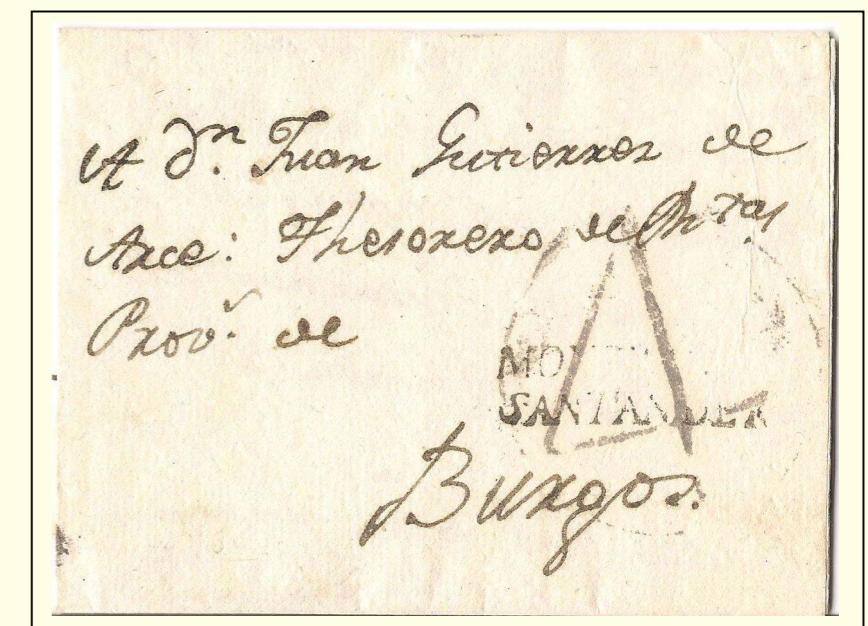 A Dn. Juan Gutierrez de
Arce: Thesorero de Rtas
Prov.s de
MON
SANTANDER
Burgos.